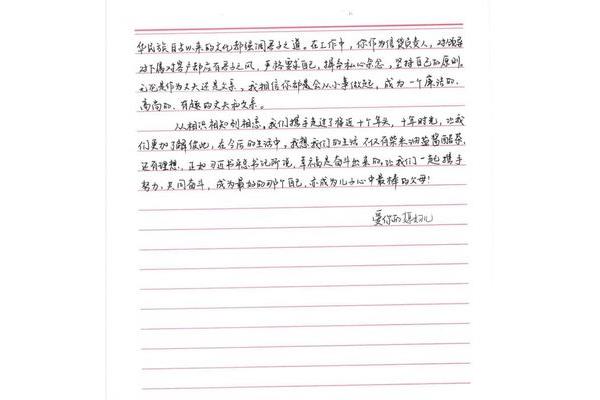 华民族自古以来的文化都强调君子之道。在工作中,你作为信贷负责人,对领导
对下属对客户都应有君子之风,严格要求自己,摒弃私心杂念,坚持自己的原则。
无论是作为丈夫还是父亲,我相信你都是会从小事做起,成为一个廉洁的、
高尚的、有趣的丈夫和父亲。
从相识相知到相恋,我们携手走过了接近十个年头,十年时光,让我
们更加了解彼此,在今后的生活中,我想我们的生活不仅有柴米油盐酱醋茶,
还有理想,正如习近平总书记所说,幸福是奋斗出来的,让我们一起携手
努力,共同奋斗,成为最好的那个自己,亦成为儿子心中最棒的父母!
爱你的